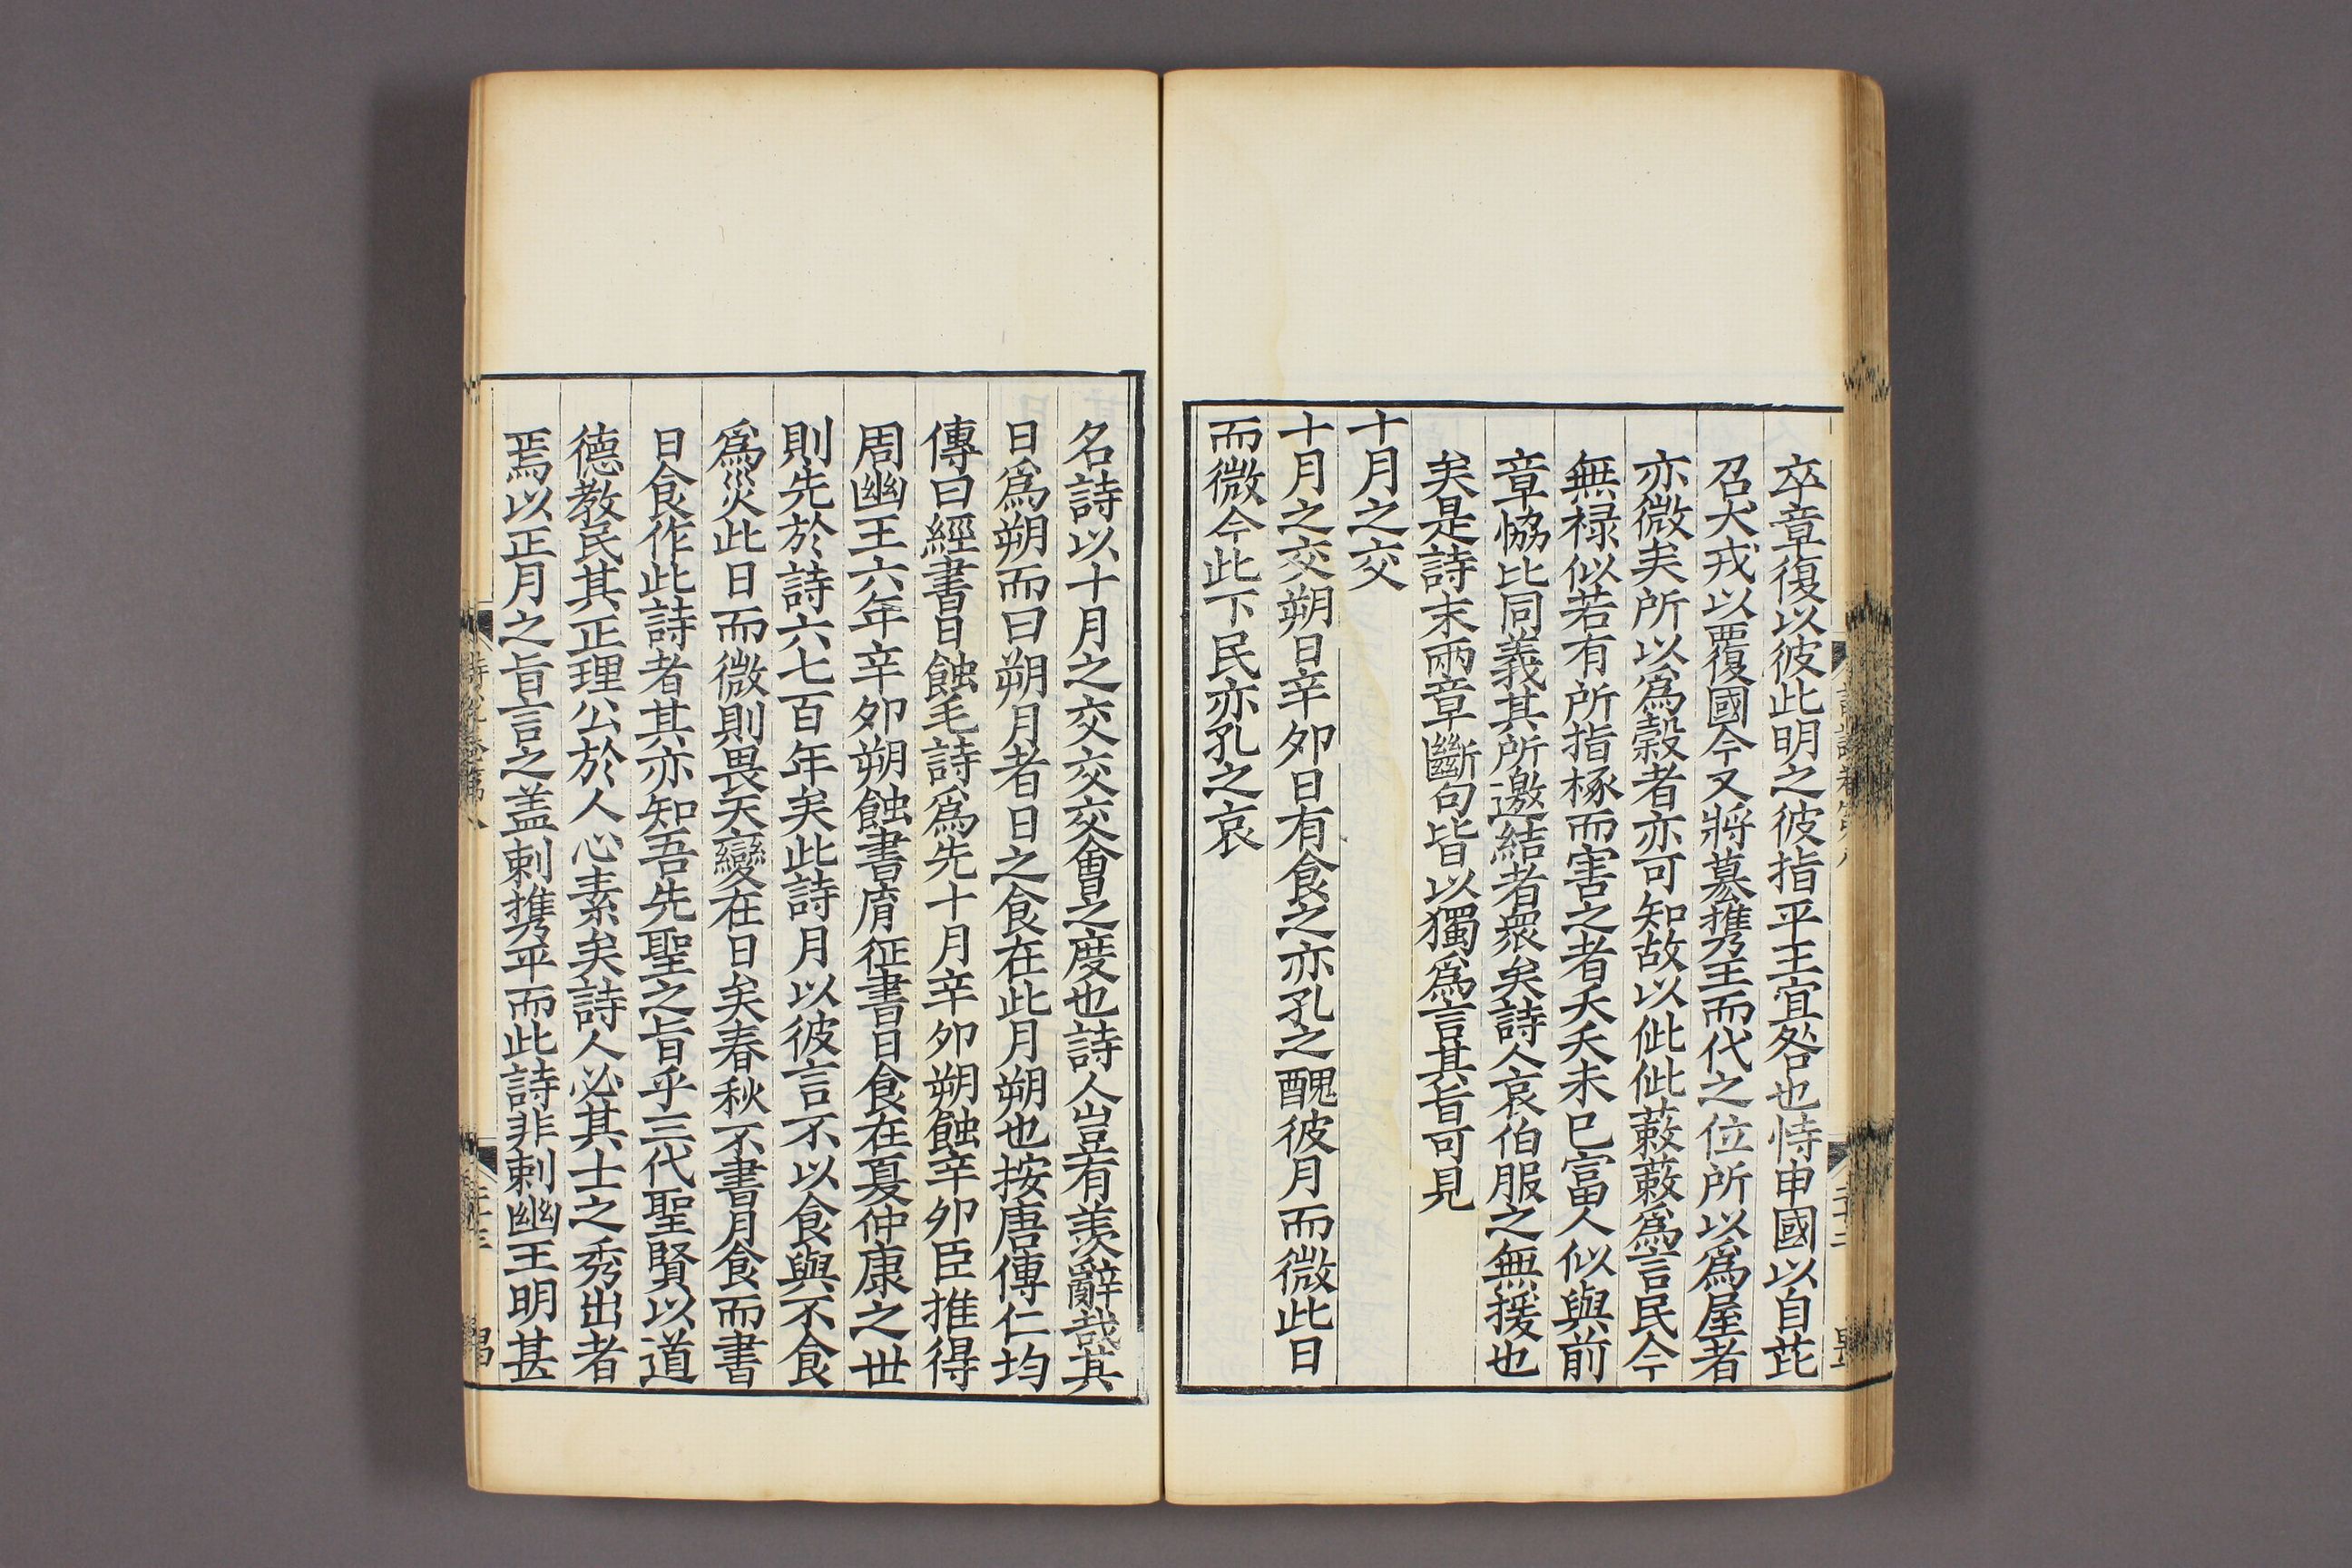 卒章復以彼此明之彼指平王宜咎也恃申國以自芘
召犬戎以覆國今又將募攜王而代之位所以爲屋者
亦微矣所以爲穀者亦可知故以佌佌蔌蔌爲言民今
無祿似若有所指椓而害之者夭夭未已富人似與前
章恊比同義其所邀結者衆矣詩人哀伯服之無援也
矣是詩末兩章斷句皆以獨爲言其旨可見
十月之交
十月之交朔日辛夘日有食之亦孔之醜彼月而微此日
而微今此下民亦孔之哀
名詩以十月之交交交會之度也詩人豈有羨辭哉其
日爲朔而曰朔月者日之食在此月朔也按唐傅仁均
傳曰經書日蝕毛詩爲先十月辛夘朔蝕辛夘臣推得
周幽王六年辛夘朔蝕書㣧征書日食在夏仲康之世
則先於詩六七百年矣此詩月以彼言不以食與不食
爲災此日而微則畏天變在日矣春秋不書月食而書
日食作此詩者其亦知吾先聖之旨乎三代聖賢以道
德教民其正理公於人心素矣詩人必其士之秀出者
焉以正月之旨言之盖刺攜平而此詩非刺幽王明甚